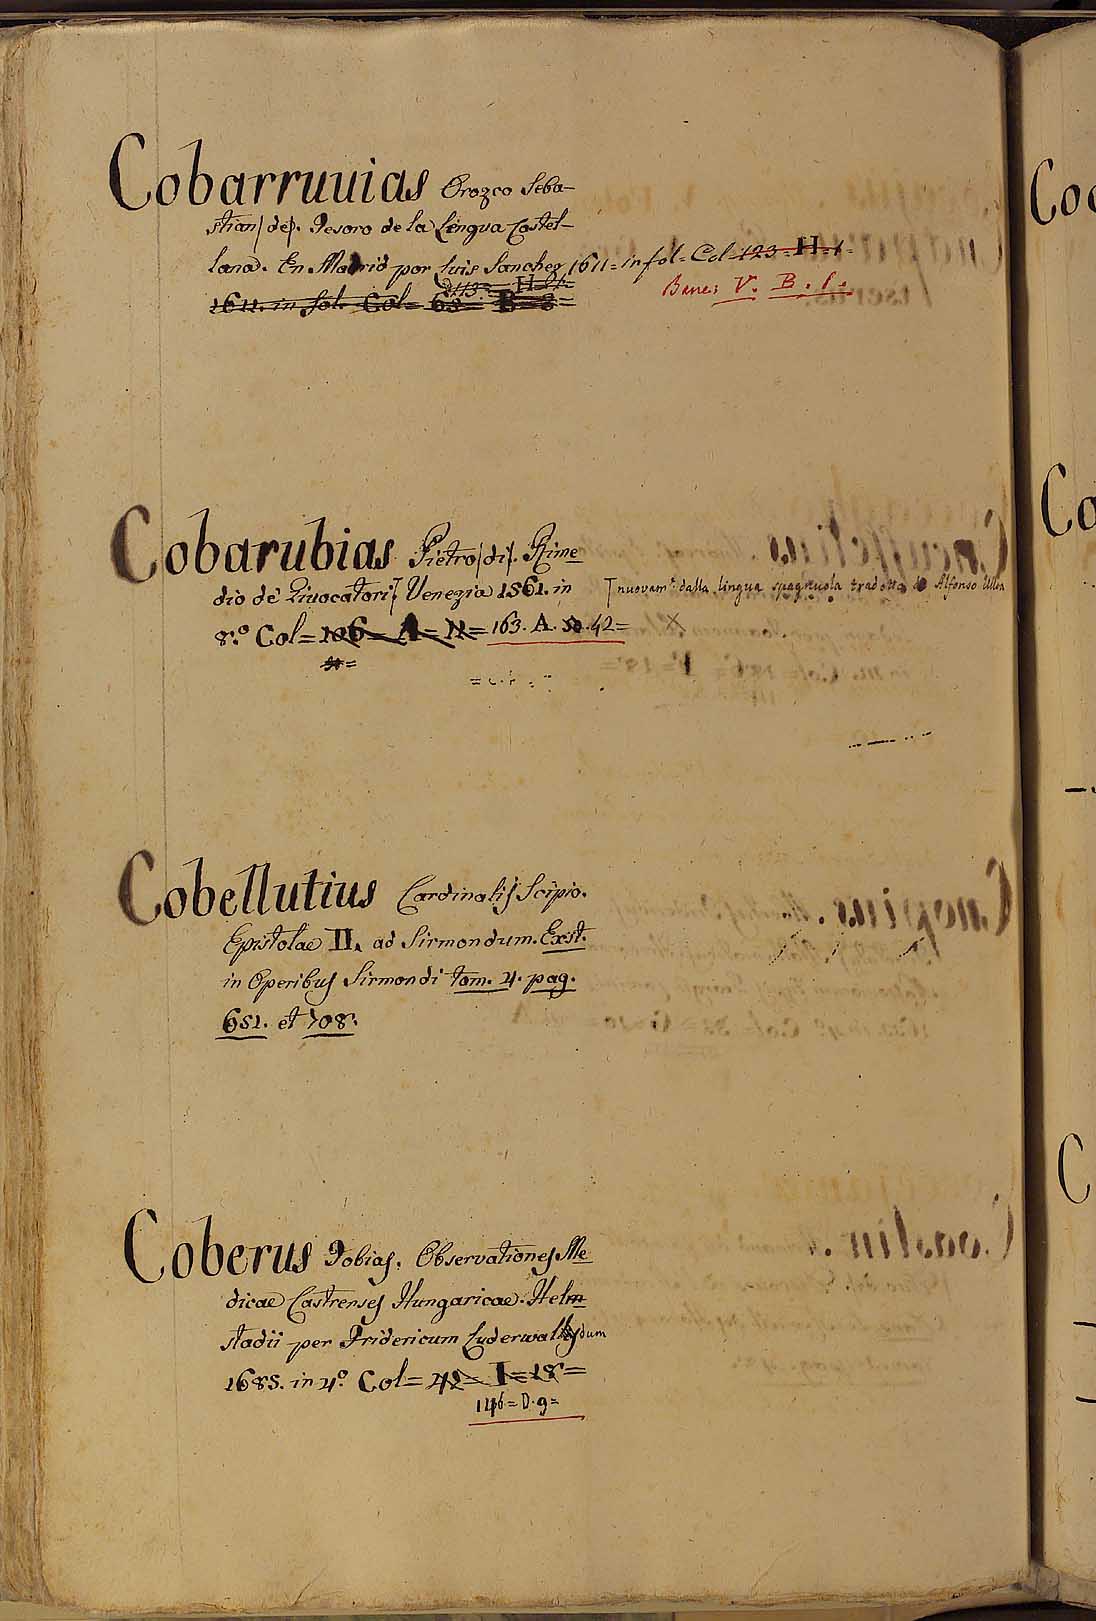 Cobarruuias Orozco Seba-
stian (de). Tesoro de la Lengua Castel-
lana. En Madrid por Luis Sanchez 1611= in fol= Col= 123= H= 1=
1611. in fol. Col= 63= B= 3=
Banc: V. B. 1.
Cobarubias Pietro (di). Rime
dio de Giuocatori Venezia 1561. in
nuovam.te dalla lingua spagnuola tradotta da Alfonso Ulloa
8.º Col= 106= A= 11= 163. A. 42= X
Cobellutius Cardinalis Scipio.
Epistolae II. ad Sirmondum. Exst.
in Operibus Sirmondi tom. 4. pag.
651. et 708.
Coberus Tobias. Observationes Me
dicae Castrenses Hungaricae. Helm
stadii per Fridericum Luderwaldum
1685. in 4º Col= 42= I= 18=
146= D. 9=